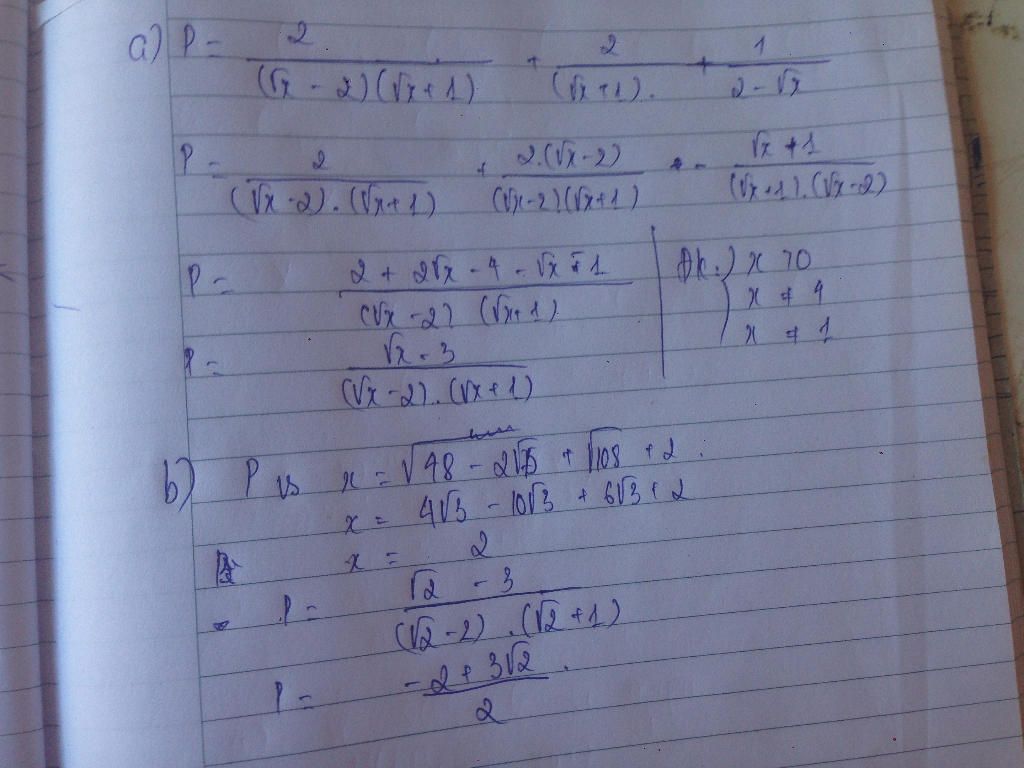 a) P = 2/((√x - 2)(√x + 1)) + 2/((√x + 1).) + 1/(2 - √x)
P = 2/((√x - 2).(√x + 1)) + 2.(√x - 2)/((√x - 2)(√x + 1)) - (√x + 1)/((√x + 1).(√x - 2))
P = (2 + 2√x - 4 - √x - 1)/((√x - 2)(√x + 1))
P = (√x - 3)/((√x - 2).(√x + 1))
Đk: x > 0
x ≠ 4
x ≠ 1
b) P vs x = √48 - 2√75 + √108 + 2.
x = 4√3 - 10√3 + 6√3 + 2
x = 2
P = (√2 - 3)/((√2 - 2).(√2 + 1))
P = (-2 + 3√2)/2.